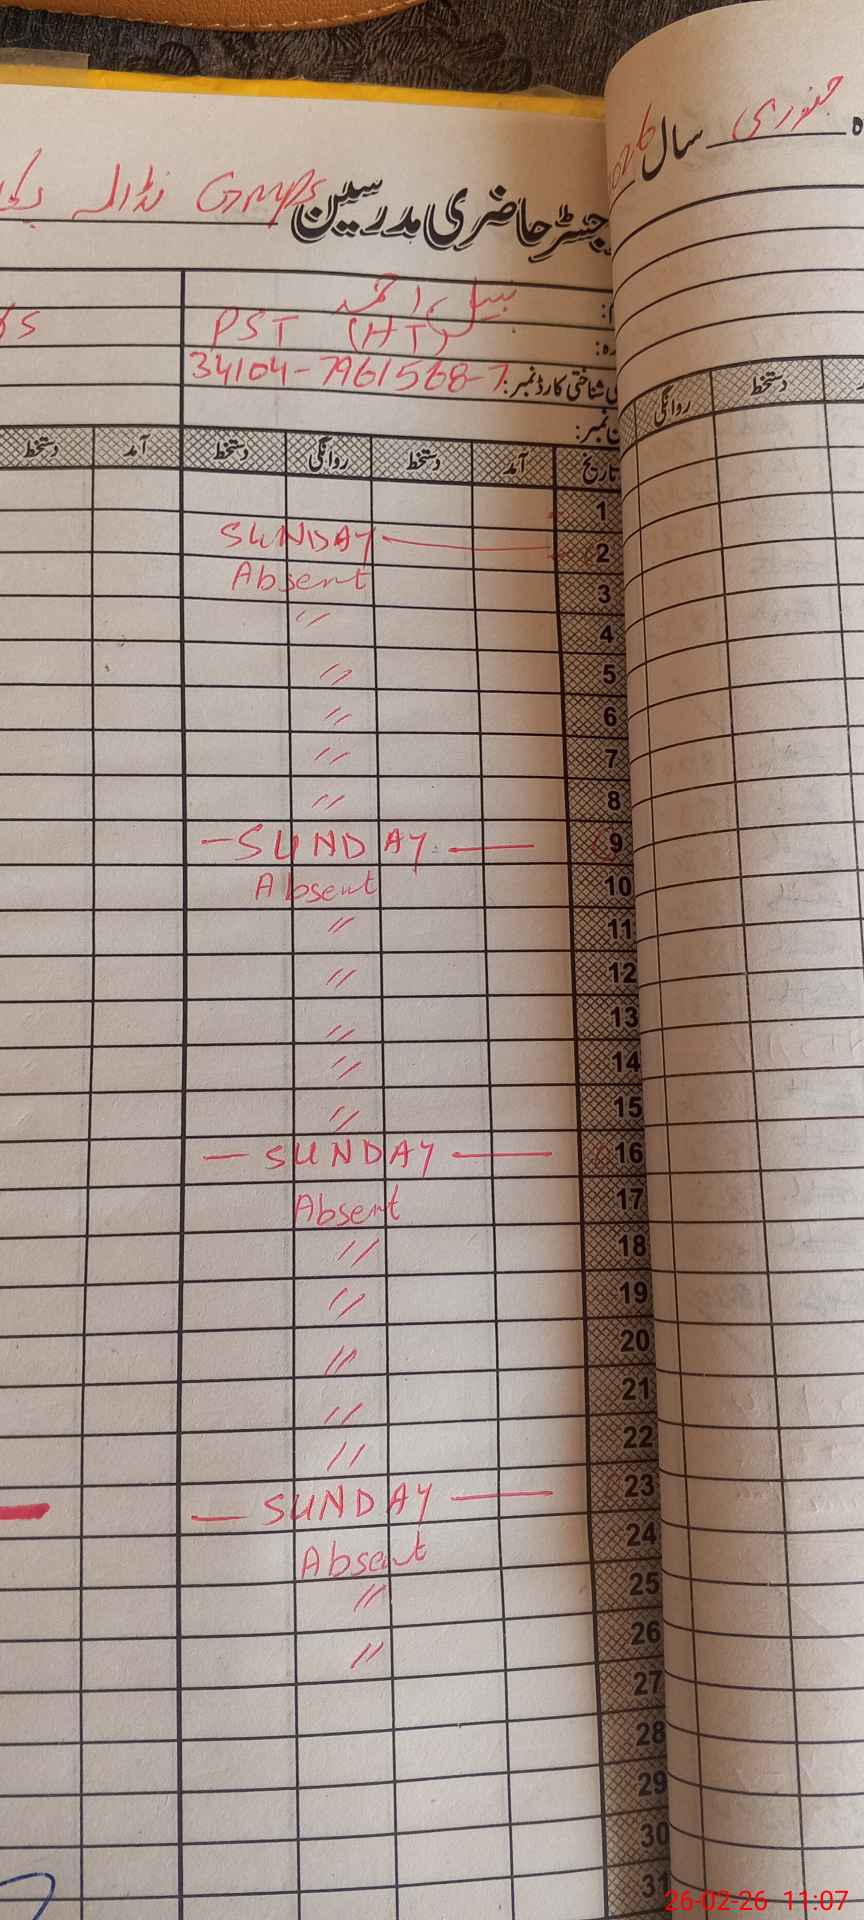 جنوری سال 026
رجسٹر حاضری مدرسین GMPS نڈالہ
نبیل احمد
PST (HT)
شناختی کارڈ نمبر: 34104-7961568-7
نمبر:
تاریخ آمد دستخط روانگی دستخط آمد دستخط
دستخط روانگی
1
2 SUNDAY
3 Absent
4 〃
5 〃
6 〃
7 〃
8 〃
9 — SUNDAY —
10 Absent
11 〃
12 〃
13 〃
14 〃
15 〃
16 — SUNDAY —
17 Absent
18 〃
19 〃
20 〃
21 〃
22 〃
23 — SUNDAY —
24 Absent
25 〃
26 〃
27
28
29
30
31
26-02-26 11:07